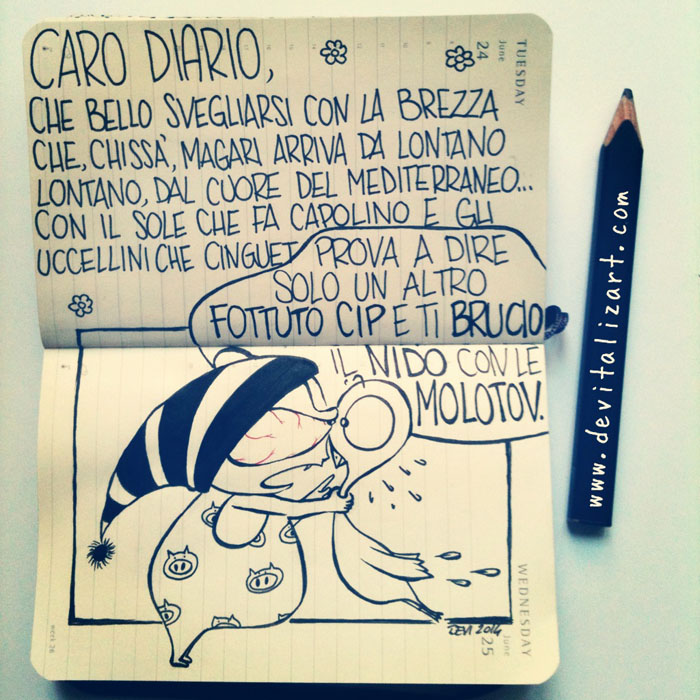 CARO DIARIO,
CHE BELLO SVEGLIARSI CON LA BREZZA
CHE, CHISSÀ, MAGARI ARRIVA DA LONTANO
LONTANO, DAL CUORE DEL MEDITERRANEO...
CON IL SOLE CHE FA CAPOLINO E GLI
UCCELLINI CHE CINGUET
PROVA A DIRE
SOLO UN ALTRO
FOTTUTO CIP E TI BRUCIO
IL NIDO CON LE
MOLOTOV.
DEVI 2014
24
June
TUESDAY
25
June
WEDNESDAY
week 26
www.devitalizart.com